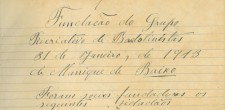 Fundação do Grupo
Recreativo de Bandolinistas
31 de Janeiro, de 1913
de Manique de Baixo
Foram socios fundadores os
seguintes